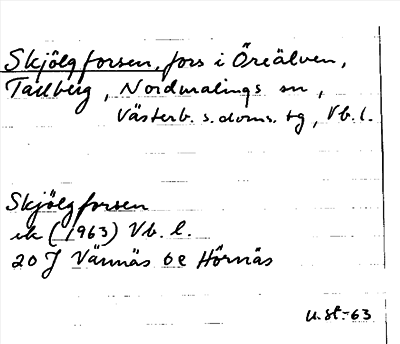 Skjölgforsen, fors i Öreälven,
Tallberg, Nordmalings sn,
Västerb. s. doms. tg, Vb. l.
Skjölgforsen
ek (1963) Vb. l.
20 J Vännäs 6e Hörnäs
U.st.-63